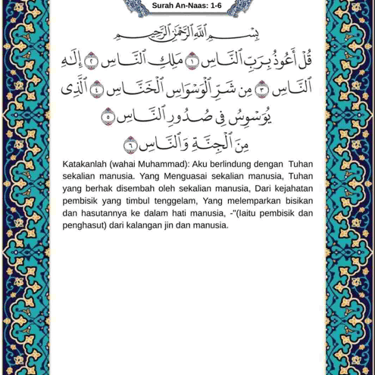 Surah An-Naas: 1-6
بِسْمِ اللَّهِ الرَّحْمَٰنِ الرَّحِيمِ
قُلْ أَعُوذُ بِرَبِّ النَّاسِ ١ مَلِكِ النَّاسِ ٢ إِلَٰهِ
النَّاسِ ٣ مِن شَرِّ الْوَسْوَاسِ الْخَنَّاسِ ٤ الَّذِي
يُوَسْوِسُ فِي صُدُورِ النَّاسِ ٥
مِنَ الْجِنَّةِ وَالنَّاسِ ٦
Katakanlah (wahai Muhammad): Aku berlindung dengan Tuhan
sekalian manusia. Yang Menguasai sekalian manusia, Tuhan
yang berhak disembah oleh sekalian manusia, Dari kejahatan
pembisik yang timbul tenggelam, Yang melemparkan bisikan
dan hasutannya ke dalam hati manusia, -"(Iaitu pembisik dan
penghasut) dari kalangan jin dan manusia.